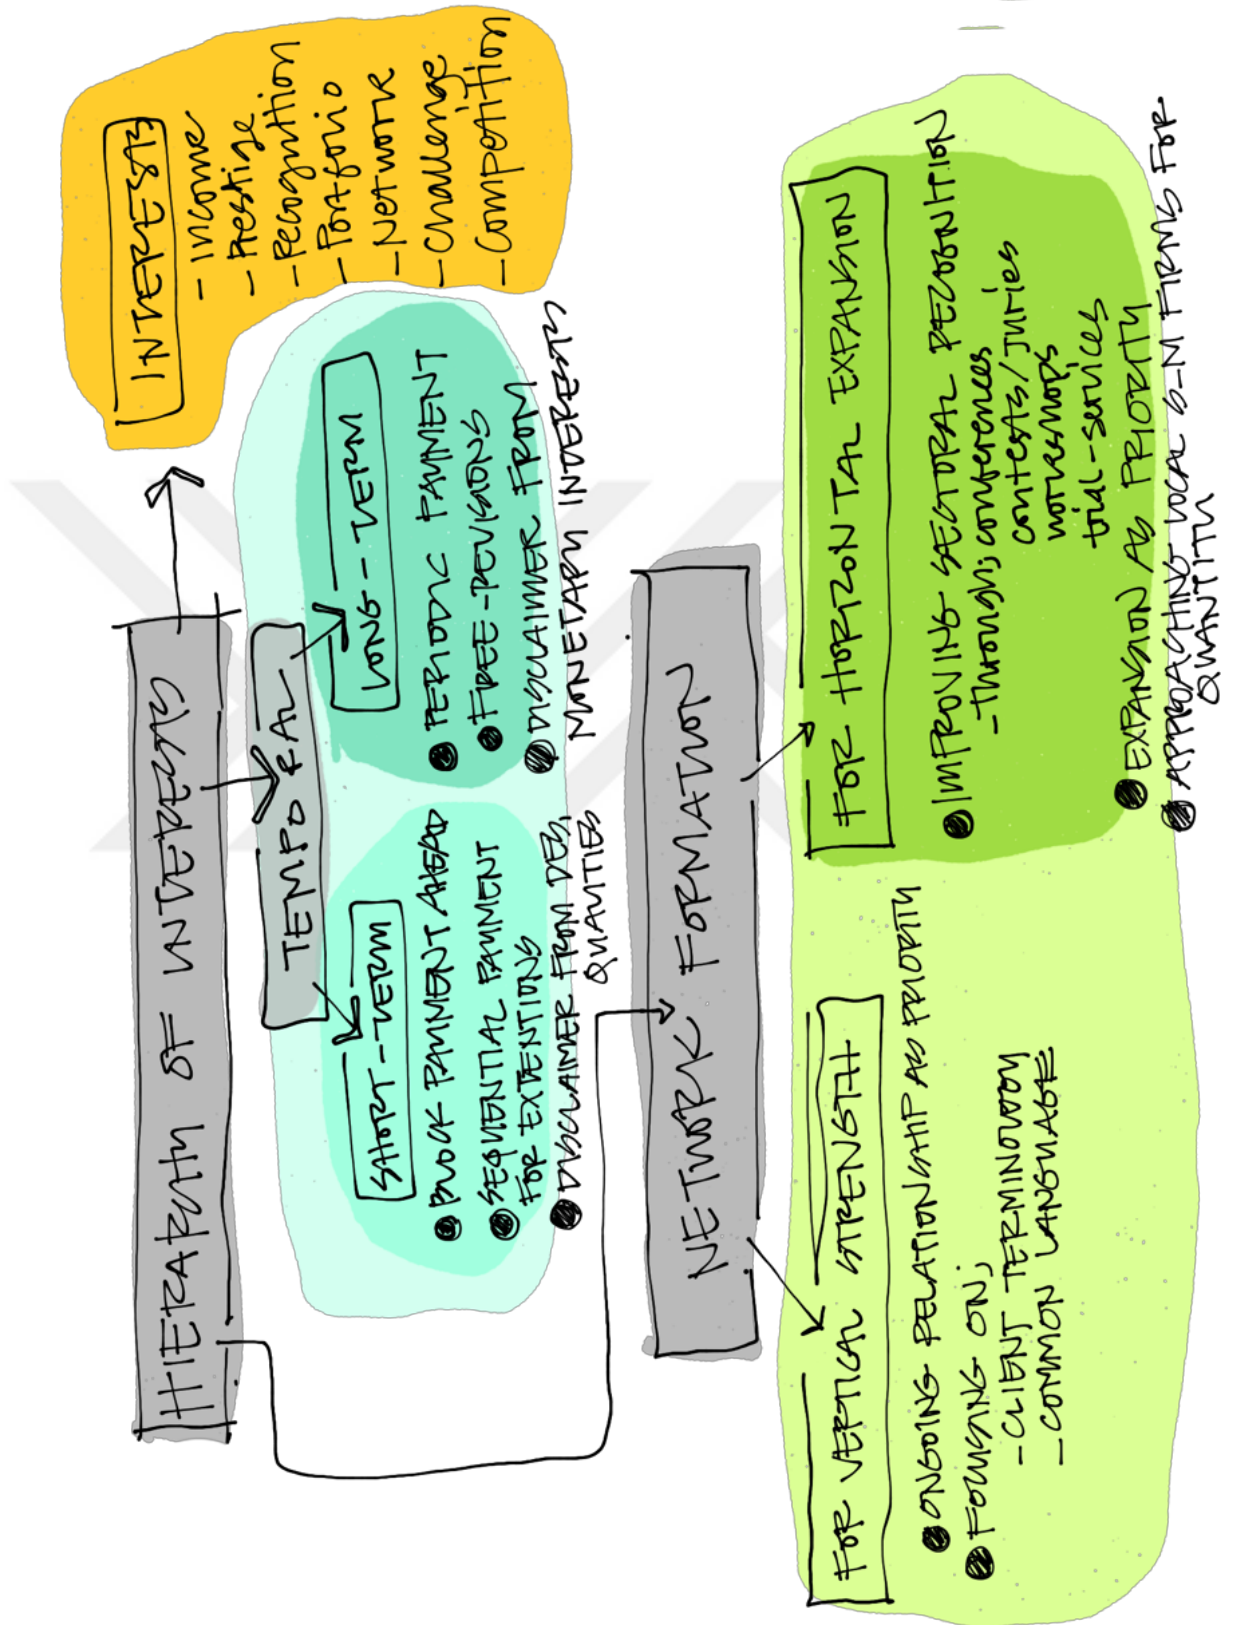 HIERARCHY OF INTERESTS
INTERESTS
- Income
- Prestige
- Recognition
- Portfolio
- Network
- Challenge
- Competition
TEMPORAL
SHORT-TERM
BLOCK PAYMENT AHEAD
SEQUENTIAL PAYMENT
FOR EXTENTIONS
DISCLAIMER FROM DES.
QUALITIES
LONG-TERM
PERIODIC PAYMENT
FREE-REVISIONS
DISCLAIMER FROM
MONETARY INTERESTS
NETWORK FORMATION
FOR VERTICAL STRENGTH
ONGOING RELATIONSHIP AS PRIORITY
FOCUSING ON;
- CLIENT TERMINOLOGY
- COMMON LANGUAGE
FOR HORIZONTAL EXPANSION
IMPROVING SECTORAL RECOGNITION
- Through; conferences
contests/juries
workshops
trial-services
EXPANSION AS PRIORITY
APPROACHING LOCAL S-M FIRMS FOR
QUANTITY